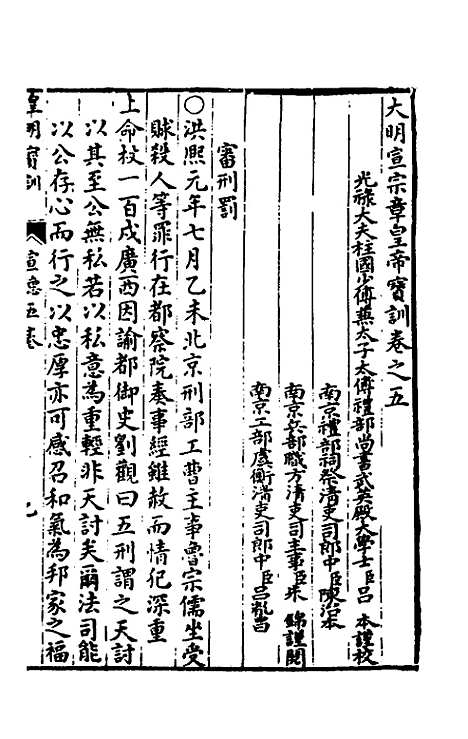 大明宣宗章皇帝寶訓卷之五
光祿大夫柱國少傅蕪太子太傅禮部尚書武英殿大學士臣呂 本謹校
南京禮部祠祭清吏司郎中臣陳治本
南京兵部職方清吏司主事臣朱 錦謹閱
南京工部虞衡清吏司郎中臣呂胤昌
審刑罰
○洪熙元年七月乙未北京刑部工曹主事曾宗儒坐受
賕殺人等罪行在都察院奏事經雖赦而情犯深重
上命杖一百戍廣西因諭都御史劉觀曰五刑謂之天討
以其至公無私若以私意為重輕非天討矣爾法司能
以公存心而行之以忠厚亦可感召和氣為邦家之福
皇明寶訓 宣德五卷